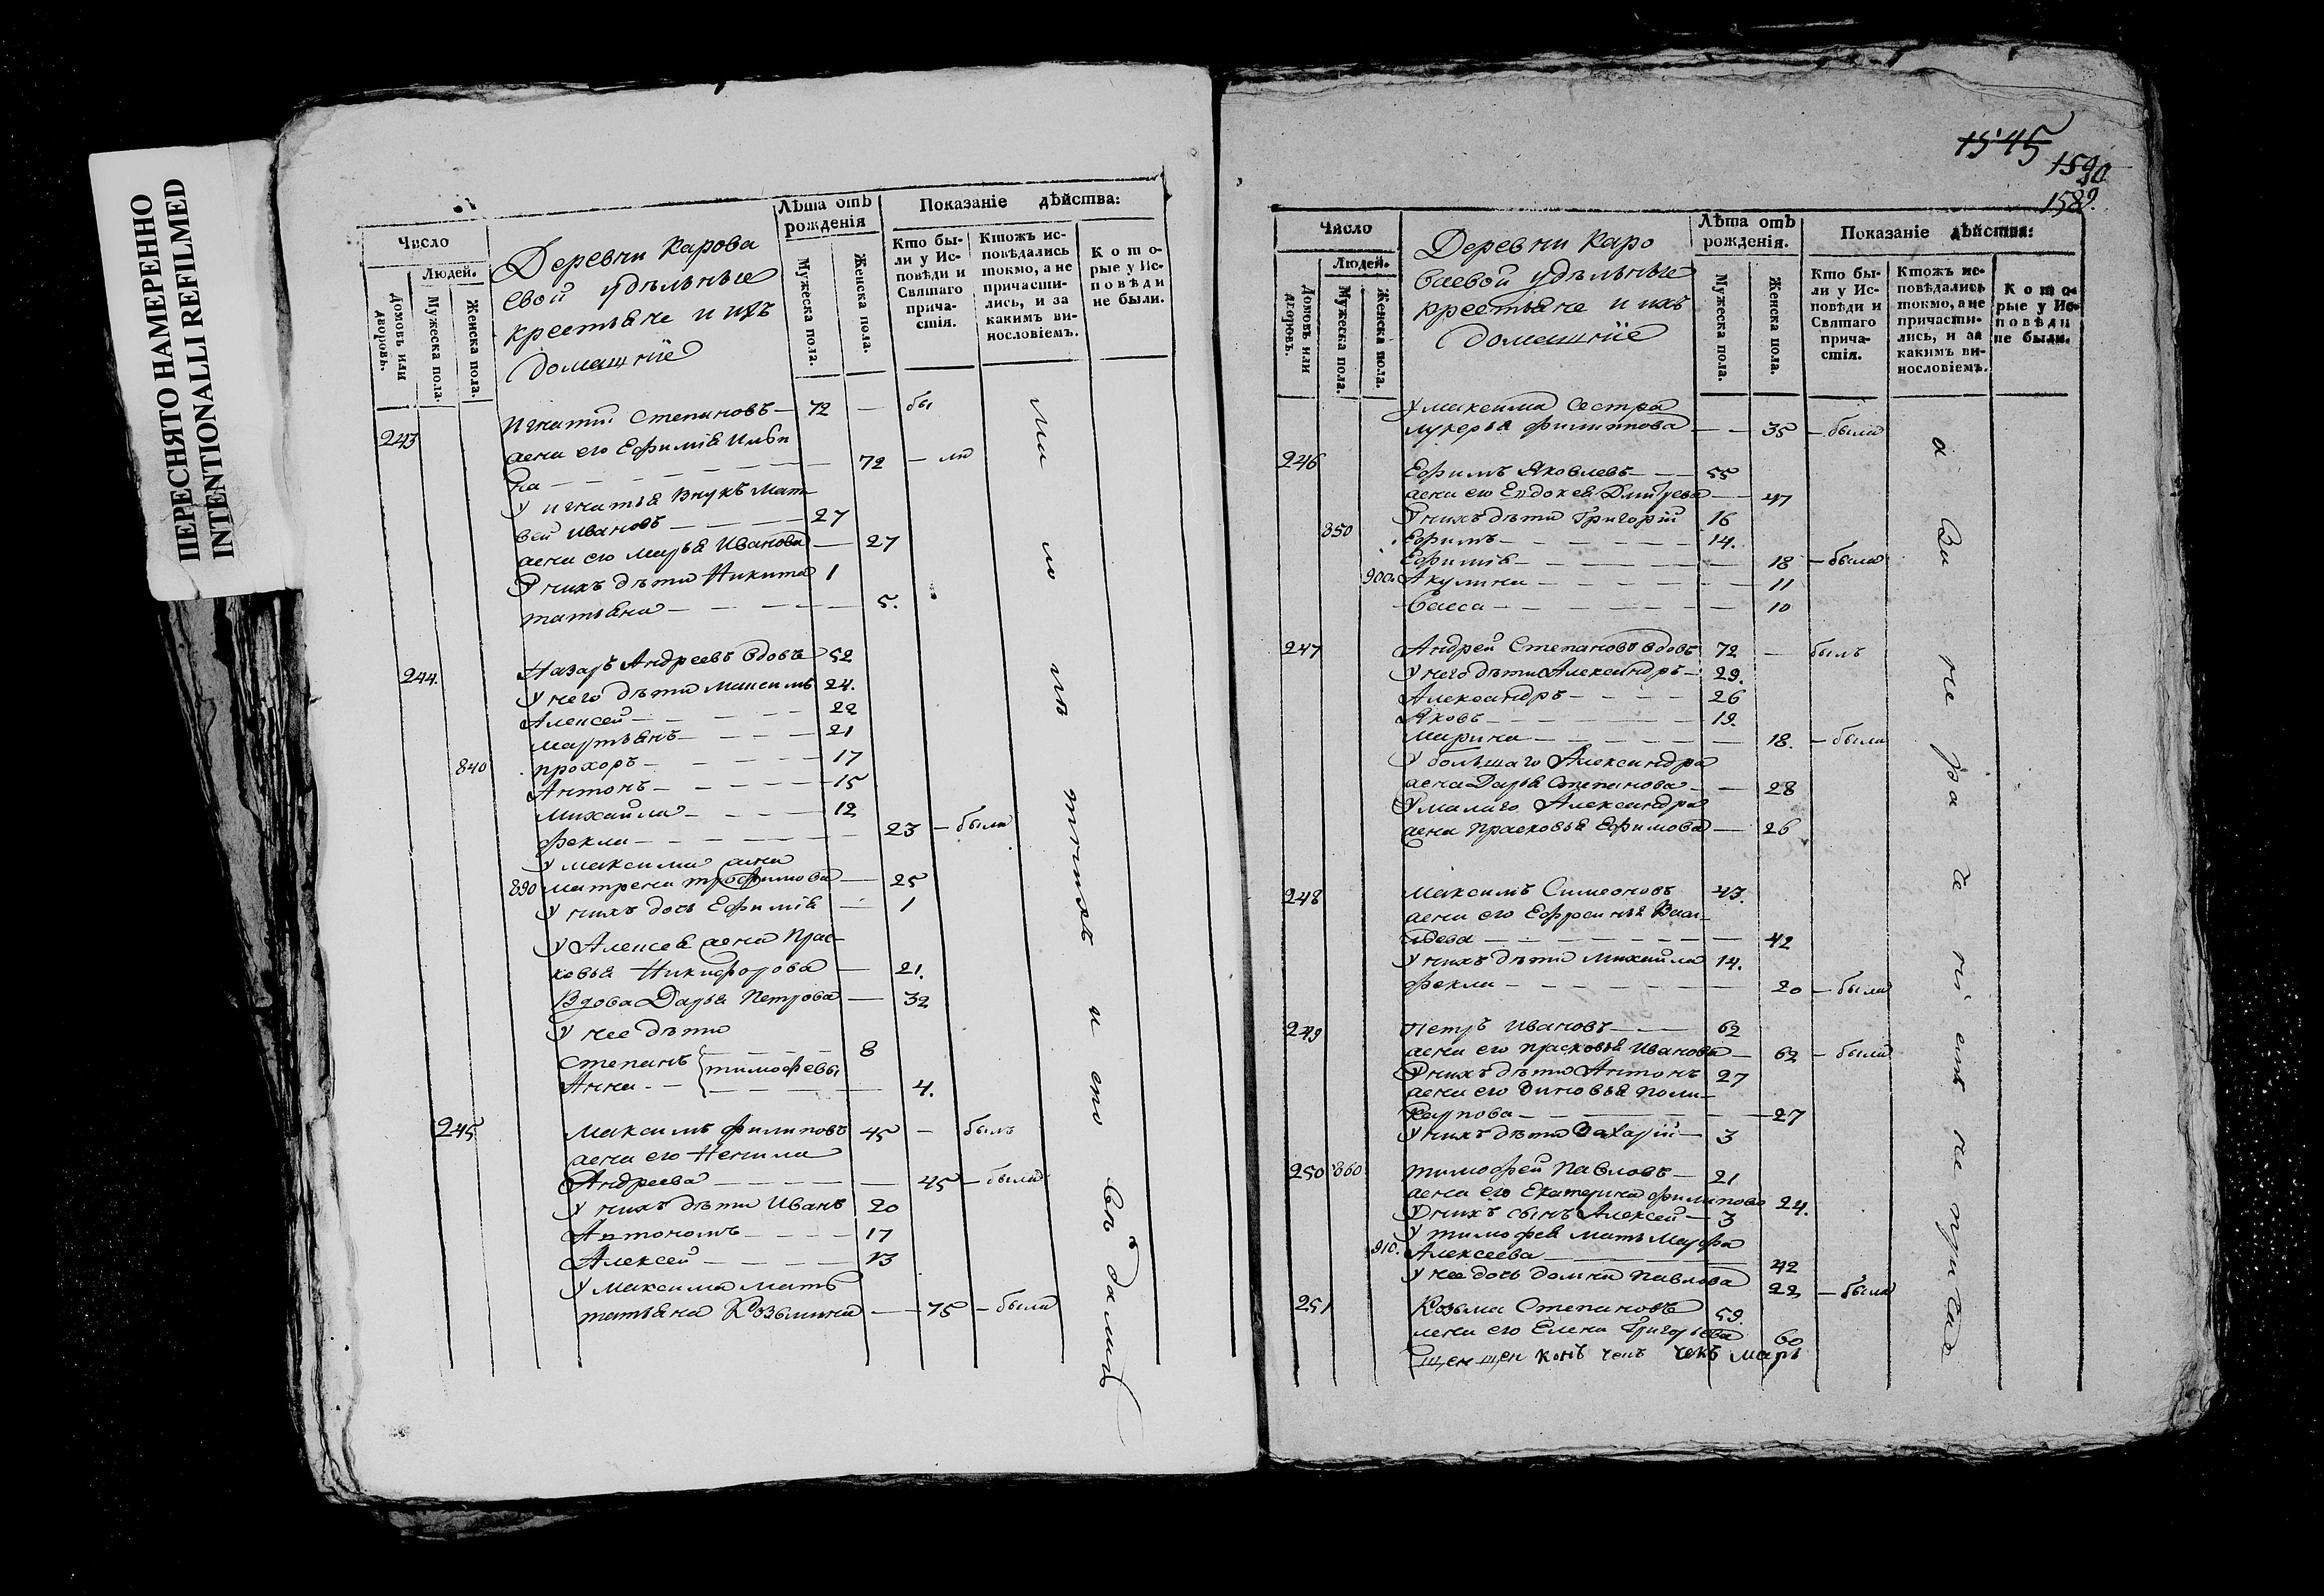 ПЕРЕСНЯТО НАМЕРЕННО
INTENTIONALLI REFILMED
Число
Людей.
Домовъ или дворовъ.
Мужеска пола.
Женска пола.
Деревни Карова
евой удѣльные
крестьяне и ихъ
домашніе
Лѣта отъ рожденія
Мужеска пола.
Женска пола.
Показаніе дѣйства:
Кто бы-
ли у Ис-
повѣди и
Святаго
прича-
стія.
Ктожъ ис-
повѣдались
токмо, а не
причасти-
лись, и за
какимъ ви-
нословіемъ.
К о т о-
рые у Ис-
п о в ѣ д и
не были.
243 Игнатій Степановъ — 72 — бы
жена его Ефимія Ильи
на — — — 72 — ли
У Игнатья внукъ Мат
вей Ивановъ — — — 27
жена его Марья Иванова — 27
У нихъ дѣти Никита 1
татьяна — — — 5.
244. Назаръ Андреевъ вдовъ 52
У него дѣти Максимъ 24.
Алексей — — — 22
Мартьянъ — — — 21
840 прохоръ — — — 17
Антонъ — — — 15
Михайла — — — 12
Фекла — — — 23 — была
У Максима жена
890 матрена трофимова — 25
У нихъ дочь Ефимія — 1
У Алексея жена Прас-
ковья Никифорова — 21.
Вдова Дарья Петрова — 32
У нее дѣти
Степанъ — — — 8
тимофевы
Анна — — — 4.
245 Максимъ Филиповъ 45 — былъ
жена его Ненила
Андреева — — — 45 — была
У нихъ дѣти Иванъ 20
Артономъ — — — 17
Алексей — — — 13
У Максима мать
татьяна Козьмина — 75 — была
1545
1590
1589.
Число
Людей.
Домовъ или дворовъ.
Мужеска пола.
Женска пола.
Деревни Каро
ваевой удѣльные
крестьяне и ихъ
домашніе
Лѣта отъ
рожденія.
Мужеска пола.
Женска пола.
Показаніе дѣйства:
Кто бы-
ли у Ис-
повѣди и
Святаго
прича-
стія.
Ктожъ ис-
повѣдались
токмо, а не
причасти-
лись, и за
какимъ ви-
нословіемъ.
К о т о-
рые у Ис-
п о в ѣ д и
не были.
У максима сестра
лукерья Филиппова — — 35 — была
246 Ефимъ Яковлевъ — — 55
жена его Евдокея Дмитрева — 47
У нихъ дѣти Григорій 16
850 Ефимъ — — — 14.
Ефимія — — — 18 — была
900 Акулина — — — 11
Васса — — — 10
247 Андрей Степановъ вдовъ 72 — былъ
У него дѣти Александръ — 29.
Александръ — — — 26
Яковъ — — — 19.
Марина — — — 18. — была
У большаго Александра
жена Дарья Степанова — — 28
У малаго Александра
жена Прасковья Ефимова — 26
248 Максимъ Симеоновъ 43.
жена его Ефросинья
42
У нихъ дѣти Михайла 14.
Фекла — — — 20 — была
249 Петръ Ивановъ — — 62
жена его прасковья Иванова — 62 — была
У нихъ дѣти Антонъ 27
жена его Зиновья Поли-
карпова — — — 27
У нихъ дѣти Захарій — 3
250 860 тимофей Павловъ — 21
жена его Екатерина Филипова 24.
У нихъ сынъ Алексей — 3
У тимофея мать Марфа
910. Алексеева — — — 42
У нее дочь домна Павлова 22 — была
251 Козьма Степановъ 59.
жена его Елена Григорьева 60